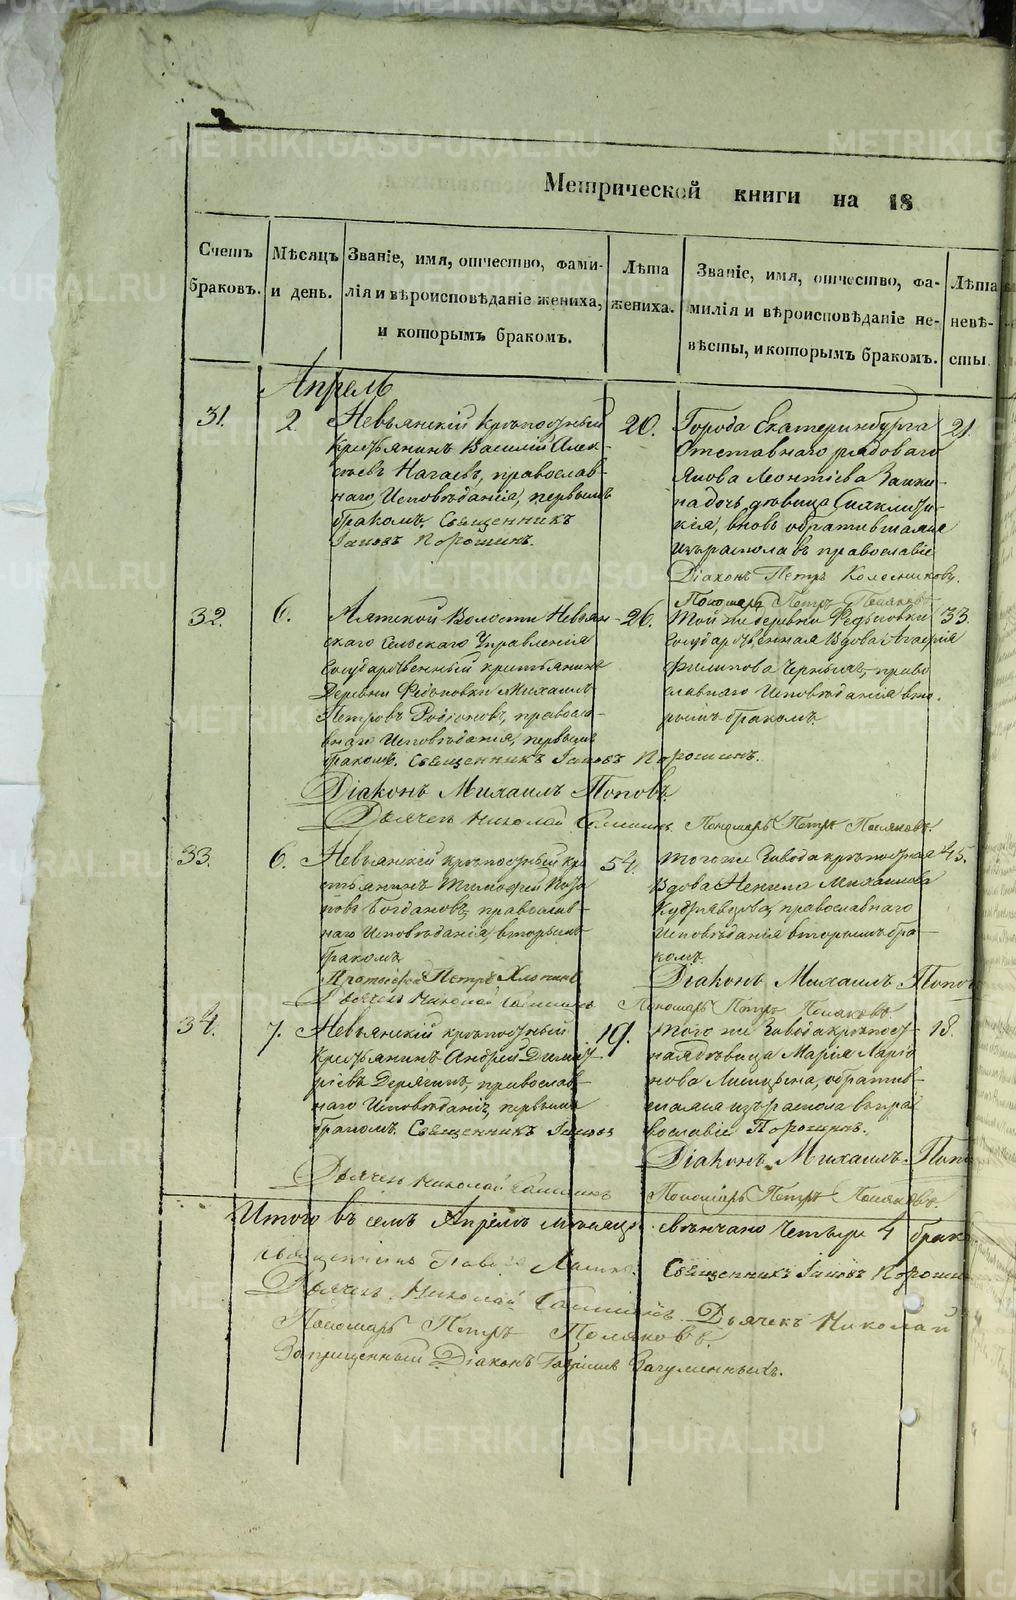 Метрической книги на 18
Счетъ браковъ.
Мѣсяцъ и день.
Званіе, имя, отчество, фами-
лія и вѣроисповѣданіе жениха,
и которымъ бракомъ.
Лѣта жениха.
Званіе, имя, отчество, фа-
милія и вѣроисповѣданіе не-
вѣсты, и которымъ бракомъ.
Лѣта невѣ-
сты.
Апрель
31.
2.
Невьянскій крѣпостный
Крестьянинъ Василий Алек-
сѣевъ Нагаевъ, православ-
наго Исповѣданія, первымъ
бракомъ. Священникъ
Іаковъ Порошинъ.
20.
Города Екатеринбурга
Отставнаго рядоваго
Якова Леонтіева
на дочь дѣвица
кія, вновь обратившаяся
изъ раскола въ православіе
Діаконъ Петръ Колесниковъ.
Пономарь Петръ Поляковъ
21.
32.
6.
Аятской Волости Невьян-
скаго Сельскаго Управленія
Государственный крестьянинъ
Деревни Федьковки Михаилъ
Петровъ Родіоновъ, правосла-
внаго Исповѣданія, первымъ
бракомъ. Священникъ Іаковъ Порошинъ.
26.
Той же деревни Федьковки
Государственная Вдова
Филипова Черныхъ, право
славнаго Исповѣданія вто-
рымъ бракомъ.
33.
Діаконъ Михаилъ Поповъ.
Дьячекъ Николай Пономарь Петръ Поляковъ.
33.
6.
Невьянскій крѣпостный кре
стьянинъ Тимофей
Богдановъ, православ-
наго Исповѣданія, вторымъ
бракомъ.
Протоіерей Петръ Хлопинъ
54.
Тогоже Завода крѣпостная
Вдова Ненила Михаилова
Кудрявцова, православнаго
Исповѣданія вторымъ бра-
комъ.
45.
Діаконъ Михаилъ Попов
Дьячекъ Николай Пономарь Петръ Поляковъ
34.
7.
Невьянскій крѣпостный
Крестьянинъ Андрей Димит-
ріевъ Дерягинъ, православ-
наго Исповѣданія, первымъ
бракомъ. Священникъ Іаковъ
19.
Того же Завода крѣпост-
ная дѣвица Марія Ларіо
нова Липцына, обратив-
шаяся изъ раскола въ пра
вославіе Порошинъ.
18.
Діаконъ Михаилъ Попо
Дьячекъ Николай
Пономарь Петръ Поляковъ.
Итого въ семъ Апрелѣ мѣсяце свѣнчано четыре 4 брак
Священникъ
Священникъ Іаковъ Пороши
Дьячекъ Николай Дьячекъ Николай
Пономарь Петръ Поляковъ.
Запрещенный Діаконъ Гавріилъ Загуменныхъ.
METRIKI.GASO-URAL.RU